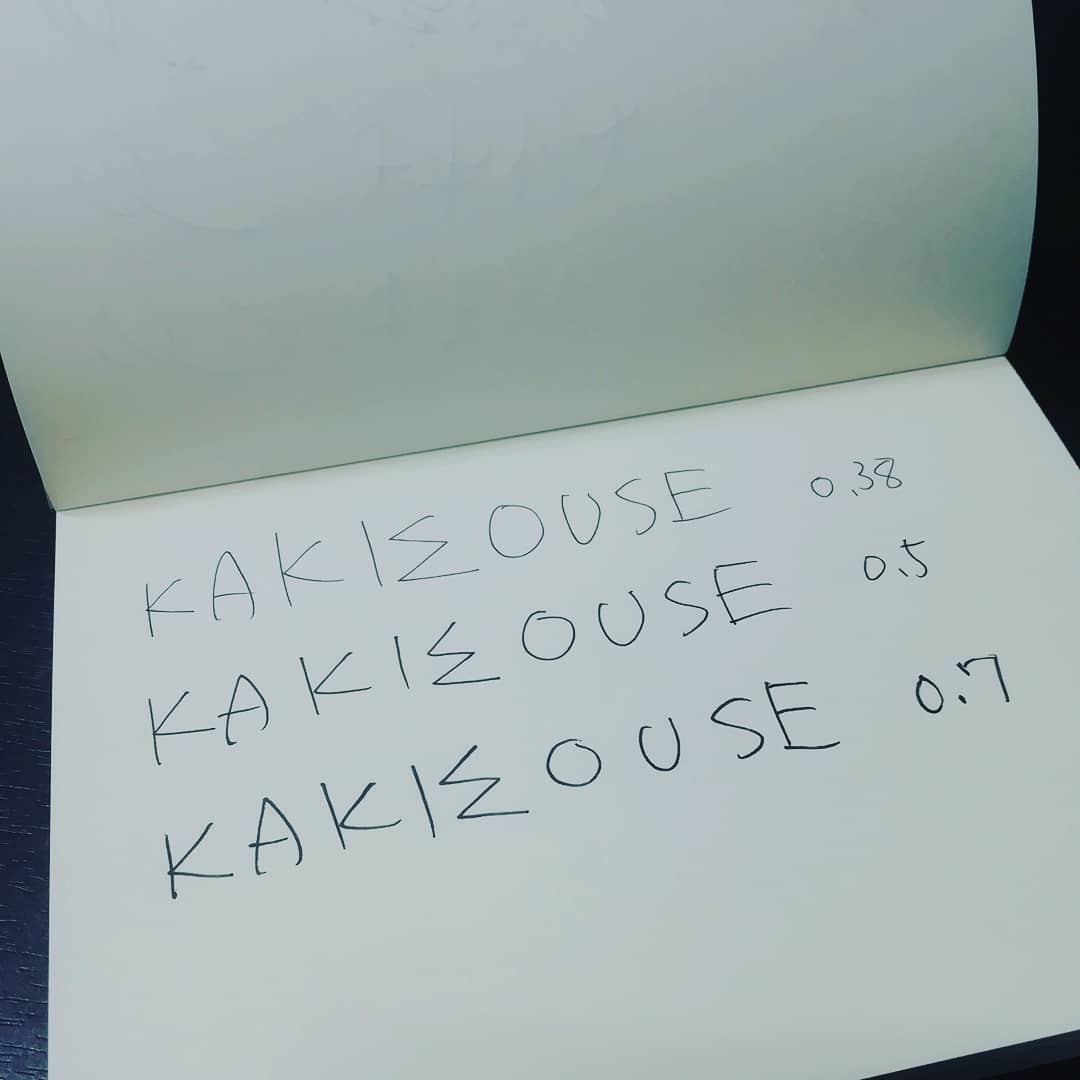 KAKIΣOUSE 0.38
KAKIΣOUSE 0.5
KAKIΣOUSE 0.7